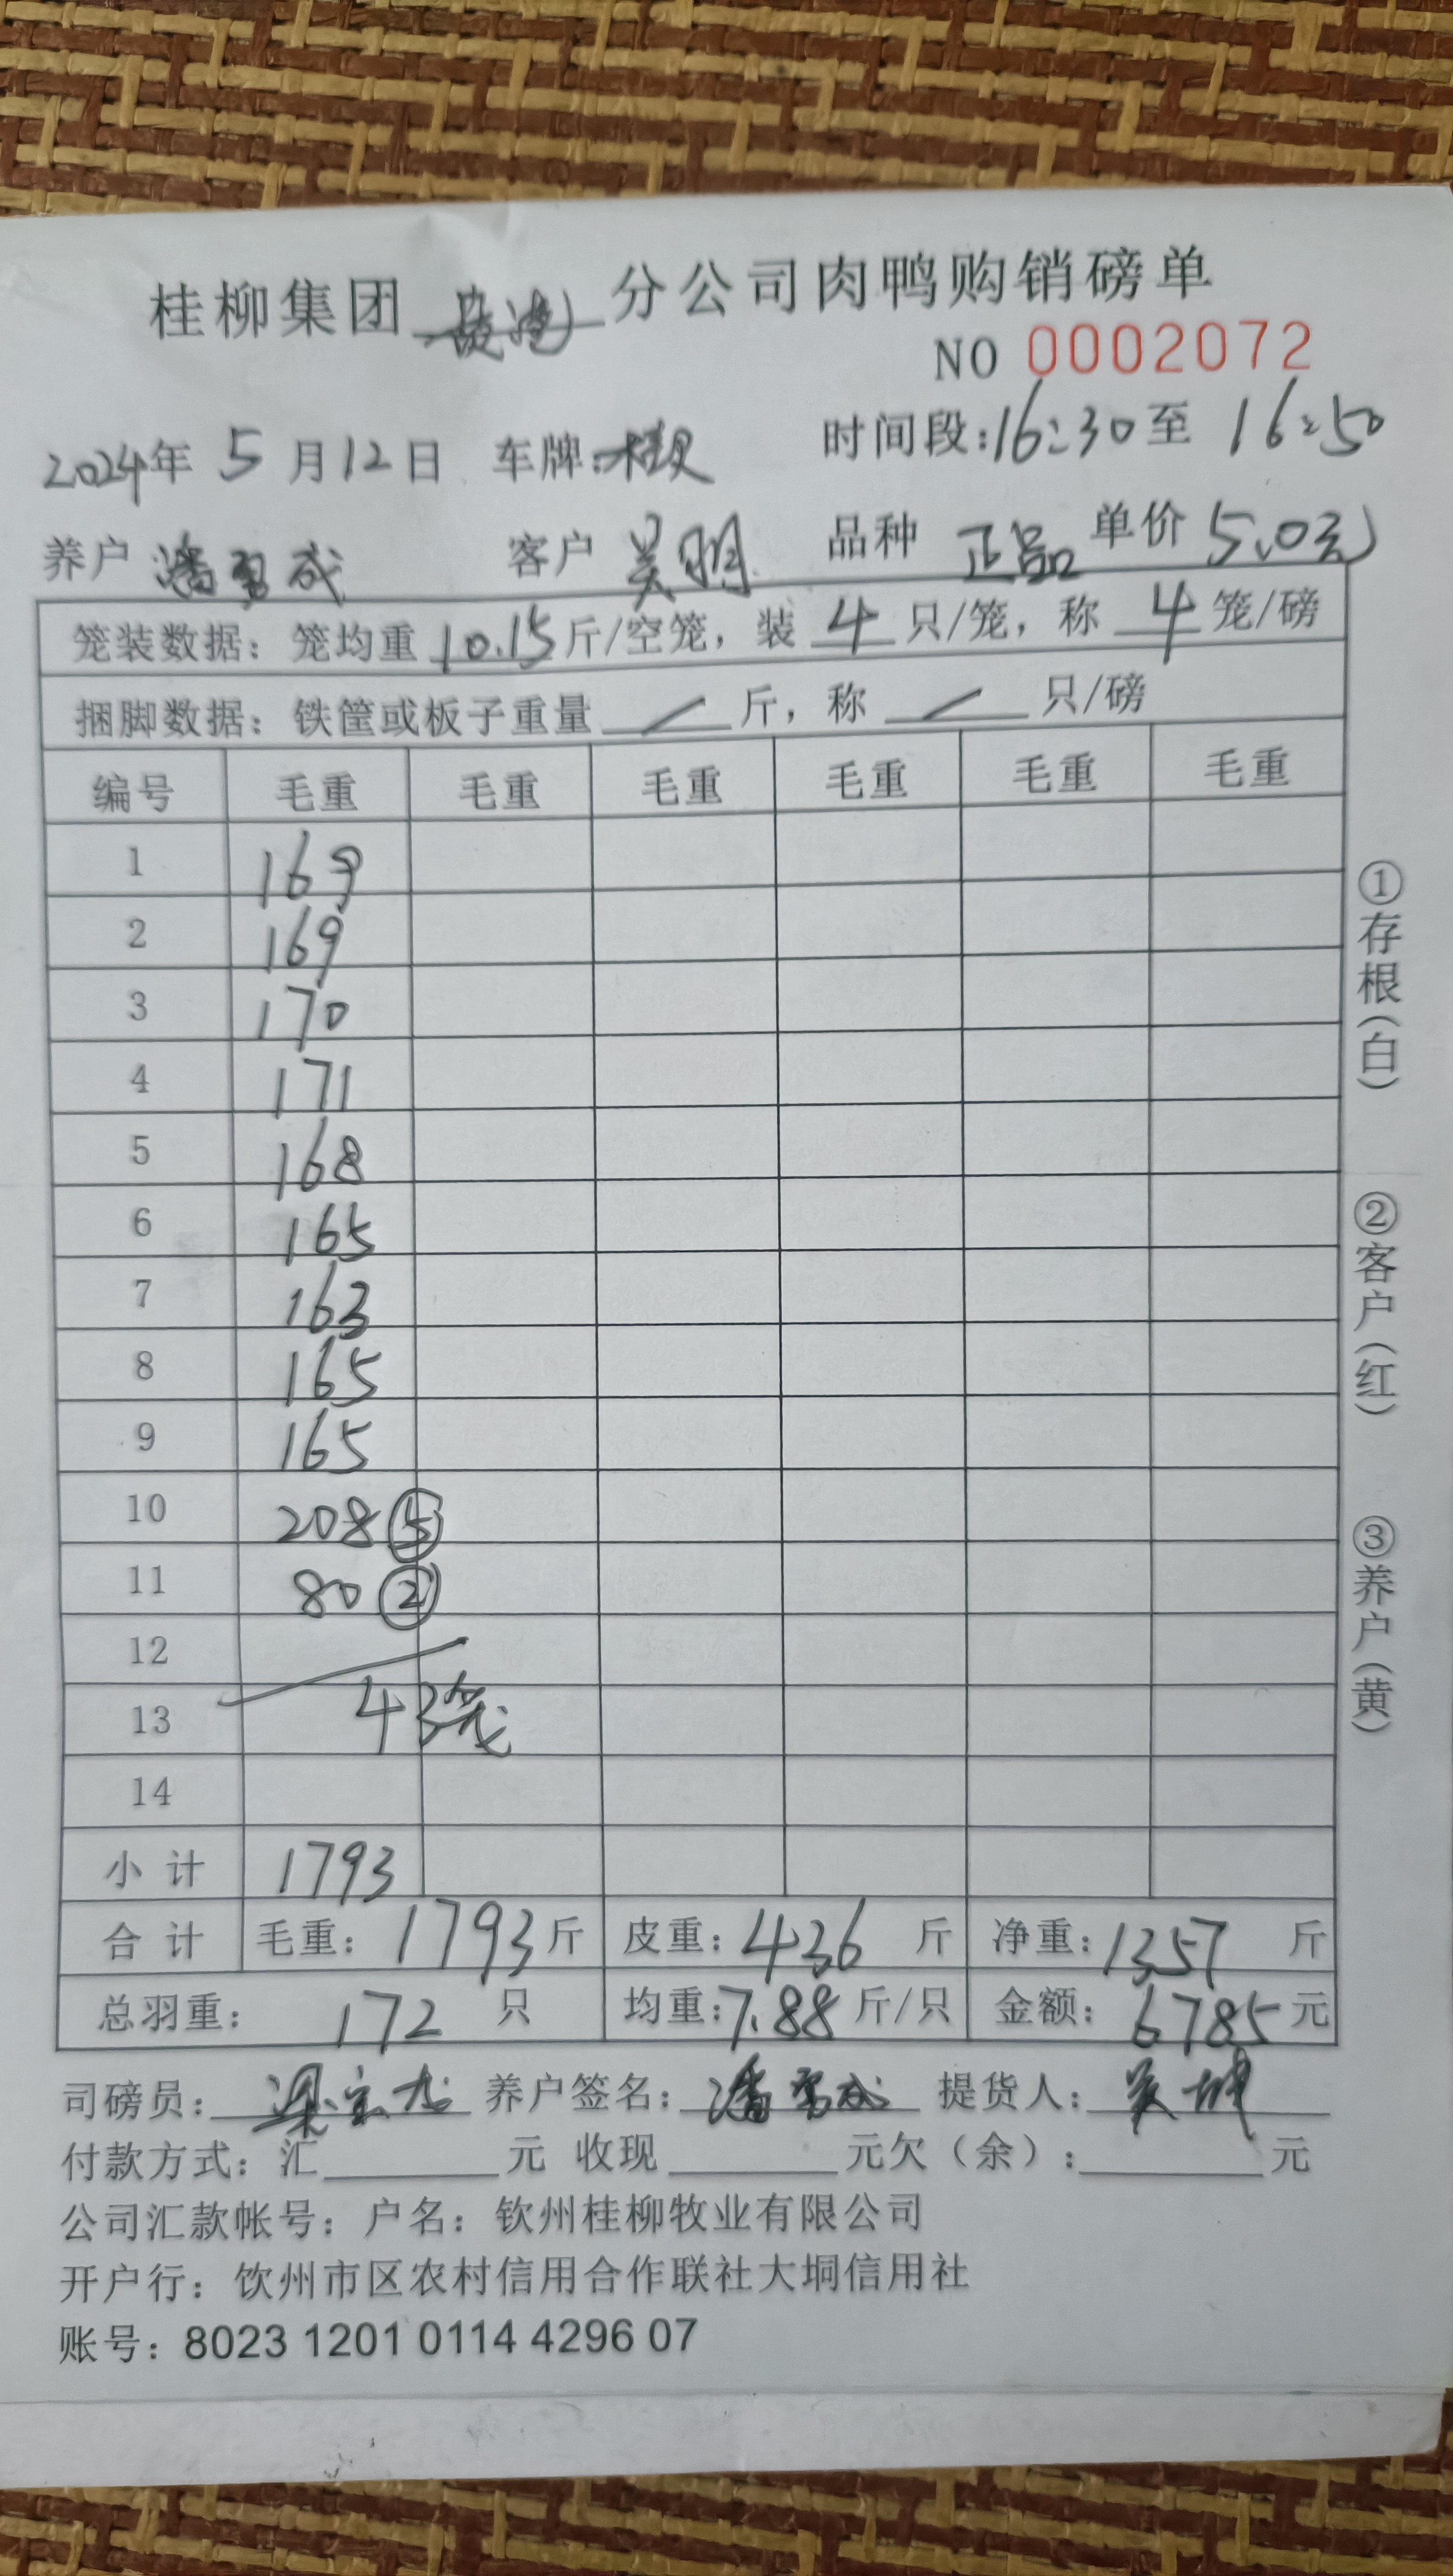 桂柳集团 分公司肉鸭购销磅单
NO 0002072
2024年 5 月12日 车牌: 时间段:16:30至 16:50
养户 潘 成 客户 吴明 品种 正品 单价 5.0元
笼装数据：笼均重 10.15 斤/空笼，装 4 只/笼，称 4 笼/磅
捆脚数据：铁筐或板子重量 / 斤，称 / 只/磅
编号 毛重 毛重 毛重 毛重 毛重 毛重
1 169
2 169
3 170
4 171
5 168
6 165
7 163
8 165
9 165
10 208 ⑤
11 80 ②
12
13 43笼
14
小 计 1793
合 计 毛重：1793斤 皮重：436 斤 净重：1357 斤
总羽重： 172 只 均重：7.88 斤/只 金额：6785元
司磅员： 梁 养户签名：潘 成 提货人：吴
付款方式：汇 元 收现 元欠（余）： 元
公司汇款帐号：户名：钦州桂柳牧业有限公司
开户行：钦州市区农村信用合作联社大垌信用社
账号：8023 1201 0114 4296 07
①存根（白）
②客户（红）
③养户（黄）